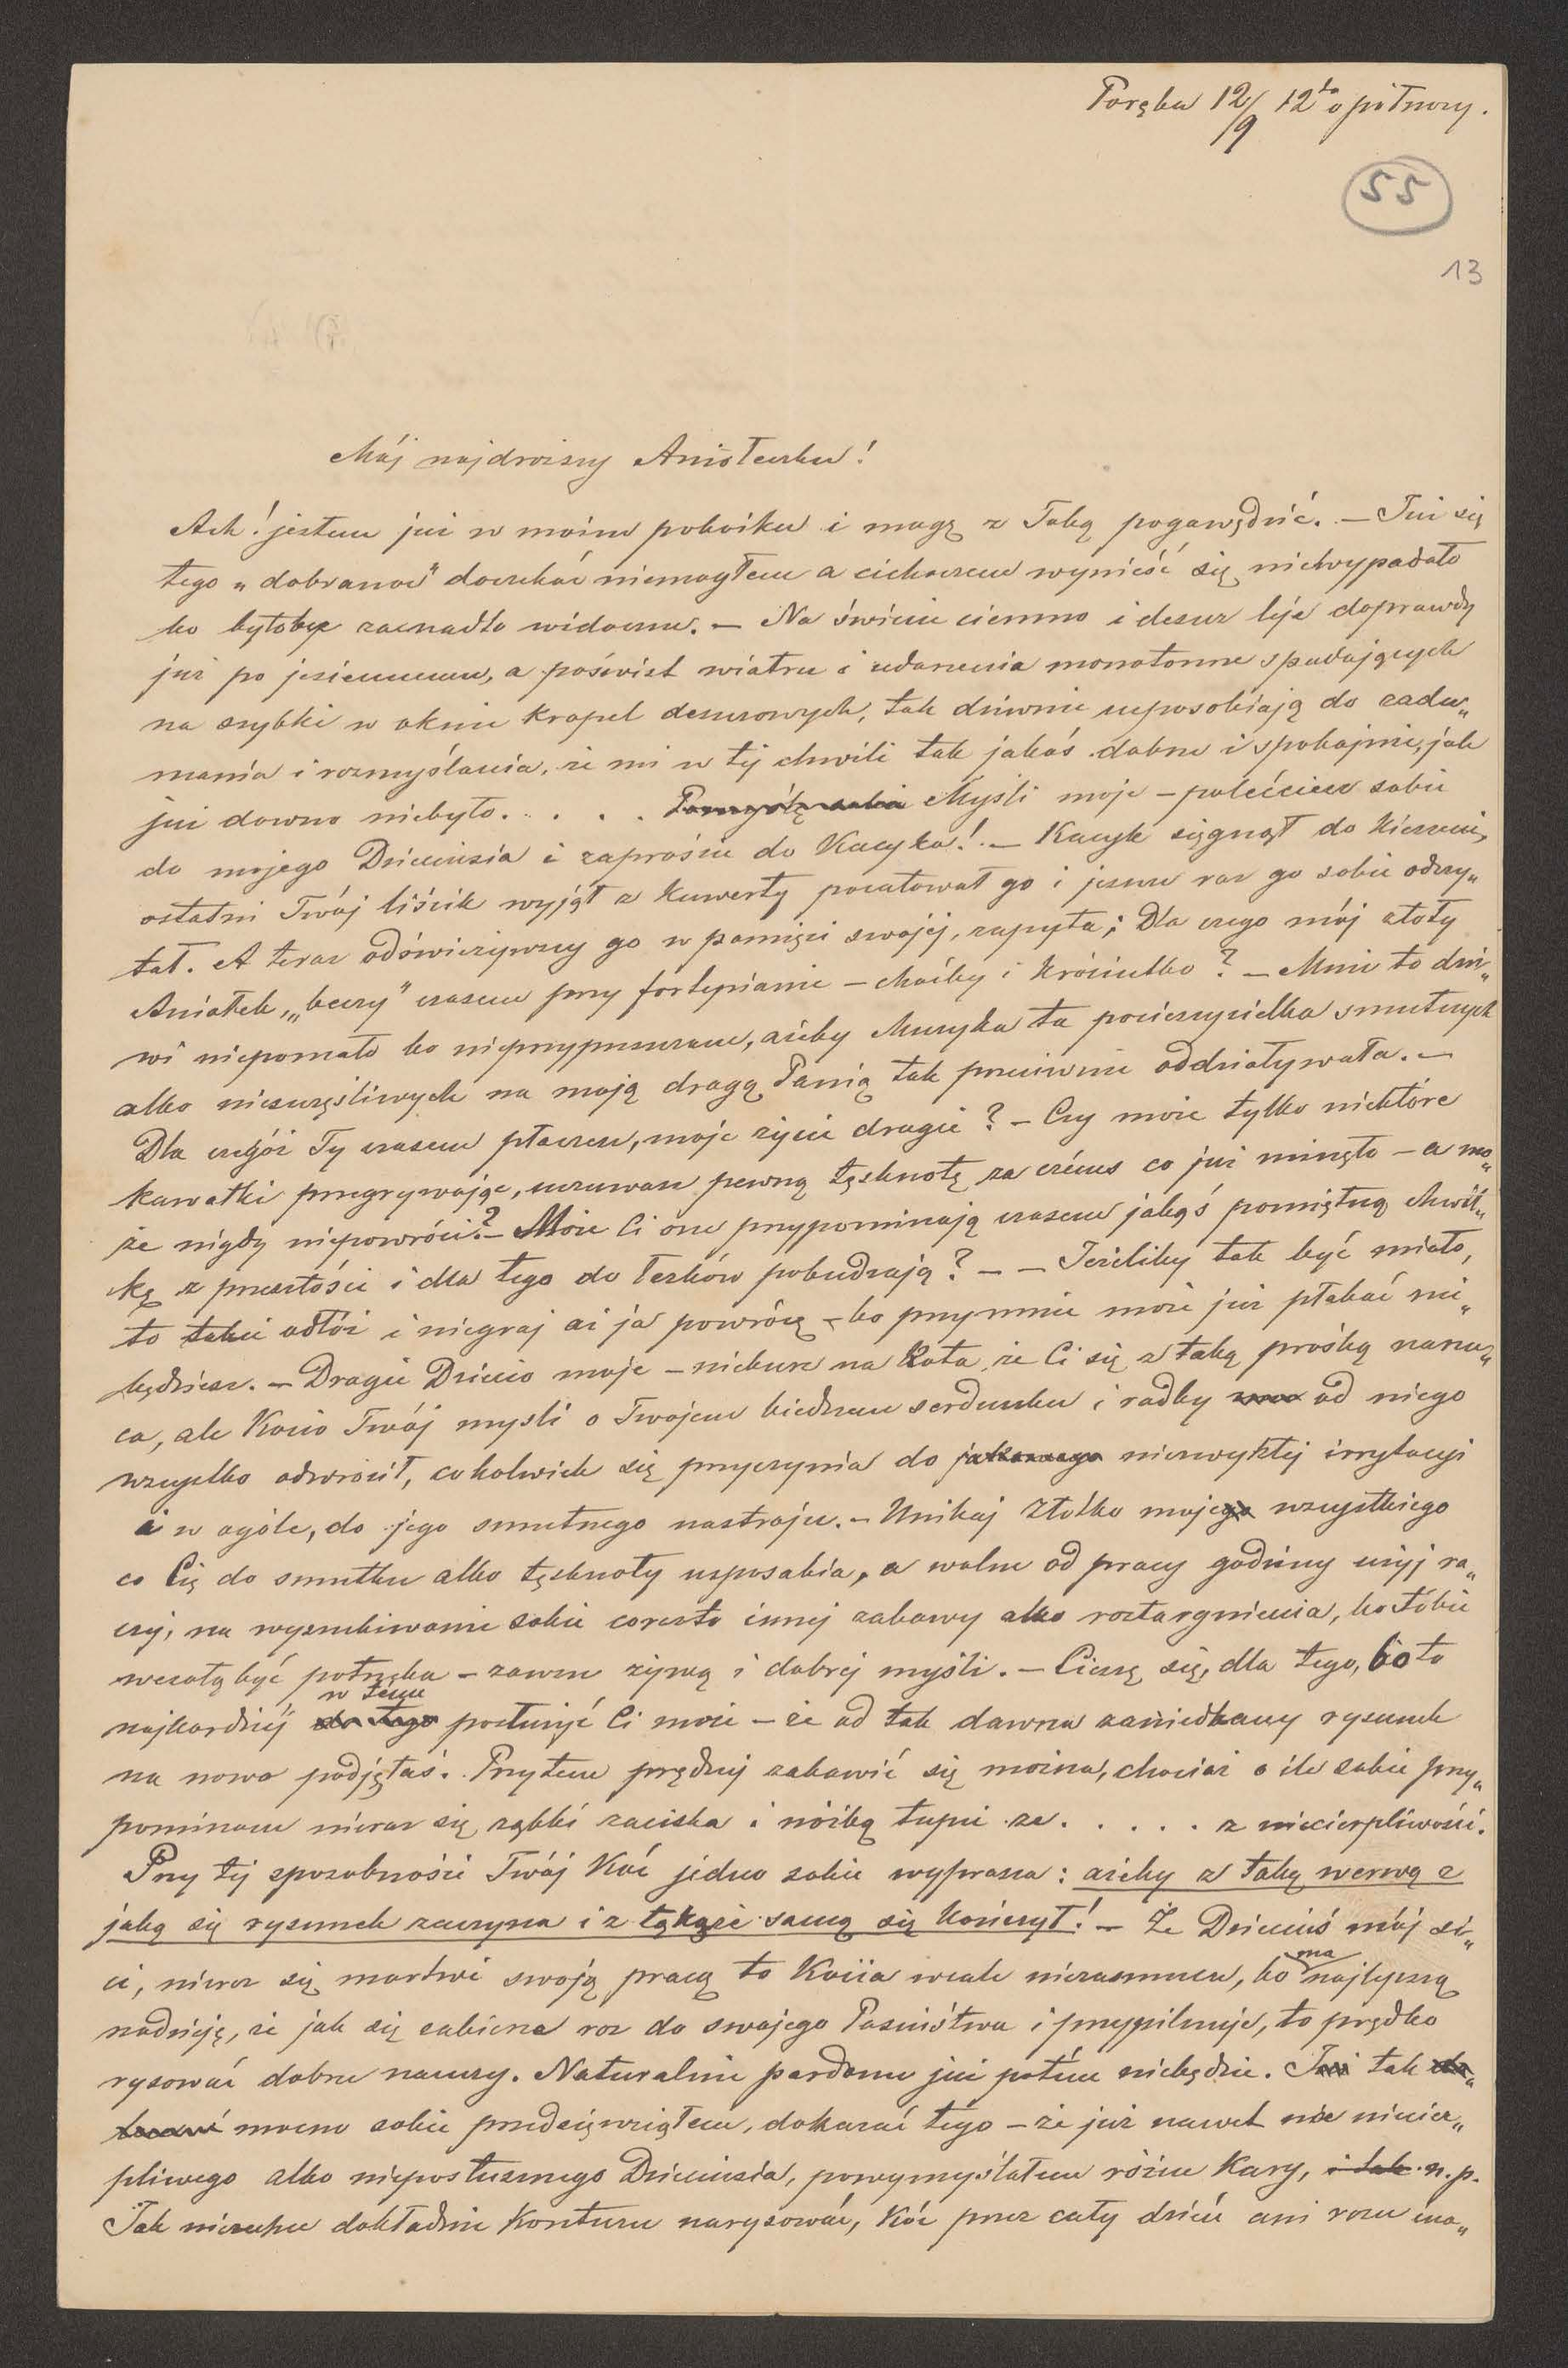 Poręba 12/9 12to o północy.
55
13
Mój najdroższy Aniołeczku!
Ach! jestem już w moim pokoiku i mogę z Tobą pogawędzić. — Już się
tego „dobranoc" doczekać niemogłem a cichaczem wynieść się niewypadało
bo byłoby zacnadto widoczne. — Na świecie ciemno i deszcz leje doprawdy
już po jesiennemu, a poświst wiatru i udarzenia monotonne spadających
na szybki w oknie kropel deszczowych, tak dziwnie usposobiają do zadu„
mania i rozmyślania, że mi w tej chwili tak jakoś dobrze i spokojnie, jak
już dawno niebyło. . . . . Pomyślę sobie Myśli moje — polećcież sobie
do mojego Dzieciusia i zaproście do Kucyka! — Kucyk sięgnął do kieszeni,
ostatni Twój liścik wyjął z kuwerty pocałował go i jeszcze raz go sobie odczy„
tał. A teraz odświeżywszy go w pamięci swojéj, zapyta; Dla czego mój złoty
Aniołek, „beczy" czasem przy fortepianie — choćby i króciutko? — Mnie to dzi„
wi niepomału bo nieprzypuszczam, ażeby Muzyka ta pocieszycielka smutnych
albo nieszczęśliwych na moją drogą Panią tak przeciwnie oddziaływała. —
Dla czegóż Ty czasem płaczesz, moje życie drogie? — Czy może tylko niektóre
kawałki przegrywając, uczuwasz pewną tęsknotę za czémś co już minęło — a mo„
że nigdy niepowróci? — Może Ci one przypominają czasem jakąś pamiętną chwil„
kę z przeszłości i dla tego do łezków pobudzają? — — Jeżeliby tak być miało,
to takie odłóż i niegraj aż ja powrócę — bo przymnie może już płakać nie„
będziesz. — Drogie Dziecio moje — nieburz na Kota, że Ci się z taką prośbą narzu„
ca, ale Kocio Twój myśli o Twojem biednem serduszku i radby od niego
wszystko odwrócił, cokolwiek się przyczynia do niezwykłej irrytacyi
i w ogóle, do jego smutnego nastroju. — Unikaj Złotko mojego wszystkiego
co Cię do smutku albo tęsknoty usposabia, a wolne od pracy godziny użyj ra„
czej, na wyszukiwanie sobie coraz to innej zabawy albo roztargnienia, bo Tobie
wesołą być potrzeba — zawsze żywą i dobrej myśli. — Cieszę się, dla tego, bo to
najbardziéj do tego w tému posłużyć Ci może — że od tak dawna zaniedbany rysunek
na nowo podjęłaś. Przytem prędzej zabawić się można, chociaż o ile sobie przy„
pominam nieraz się ząbki zaciska i nóżką tupie ze. . . . . z niecierpliwości.
Przy tej sposobności Twój Koć jedno sobie wyprasza: ażeby z taką werwą z
jaką się rysunek zaczyna i z takąże samą się kończył! — Że Dzieciuś mój si„
ci, nieraz się martwi swoją pracą to Kocia wcale niezasmuca, bo ma najlepszą
nadzieję, że jak się zabierze raz do swojego Państwa i przypilnuje, to prędko
rysować dobrze nauczy. Naturalnie pardonu już potém niebędzie. Już tak
mocno sobie przedsięwziąłem, dokazać tego — że już nawet nie niecier„
pliwego albo nieposłusznego Dzieciusia, powymyślałem różne kary, i tak n. p.
Jak niezechce dokładnie konturu narysować, Koć przez cały dzień ani razu ina„